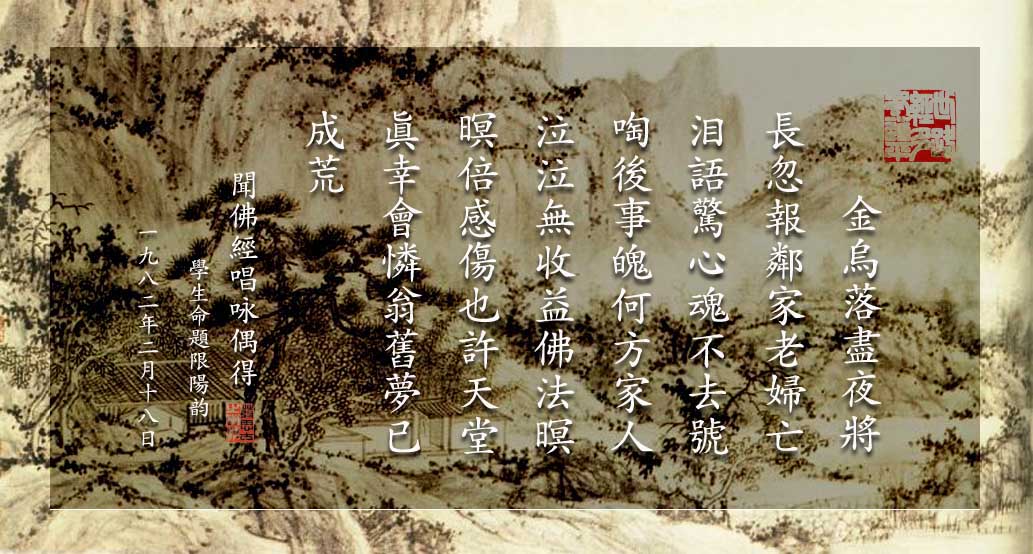 金烏落盡夜將
長忽報鄰家老婦亡
泪語驚心魂不去號
啕後事魄何方家人
泣泣無收益佛法暝
暝倍感傷也許天堂
眞幸會憐翁舊夢已
成荒
聞佛經唱咏偶得
學生命題限陽韵
一九八二年二月十八日